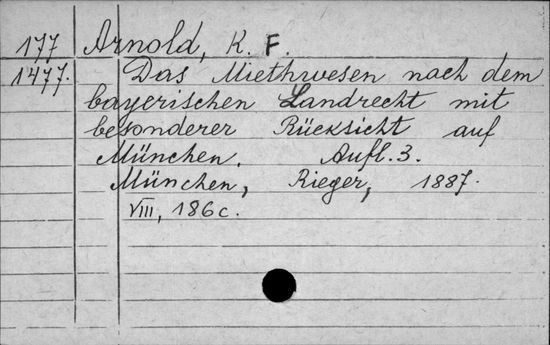 177 Arnold, K. F.
1477. Das Miethwesen nach dem
bayerischen Landrecht mit
besonderer Rücksicht auf
München. Aufl. 3.
München, Rieger, 1887.
VIII, 186 c.